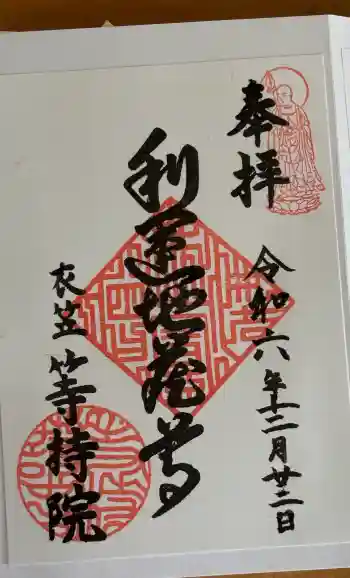 奉拝
令和六年十二月廿二日
利運地蔵尊
衣笠 等持院